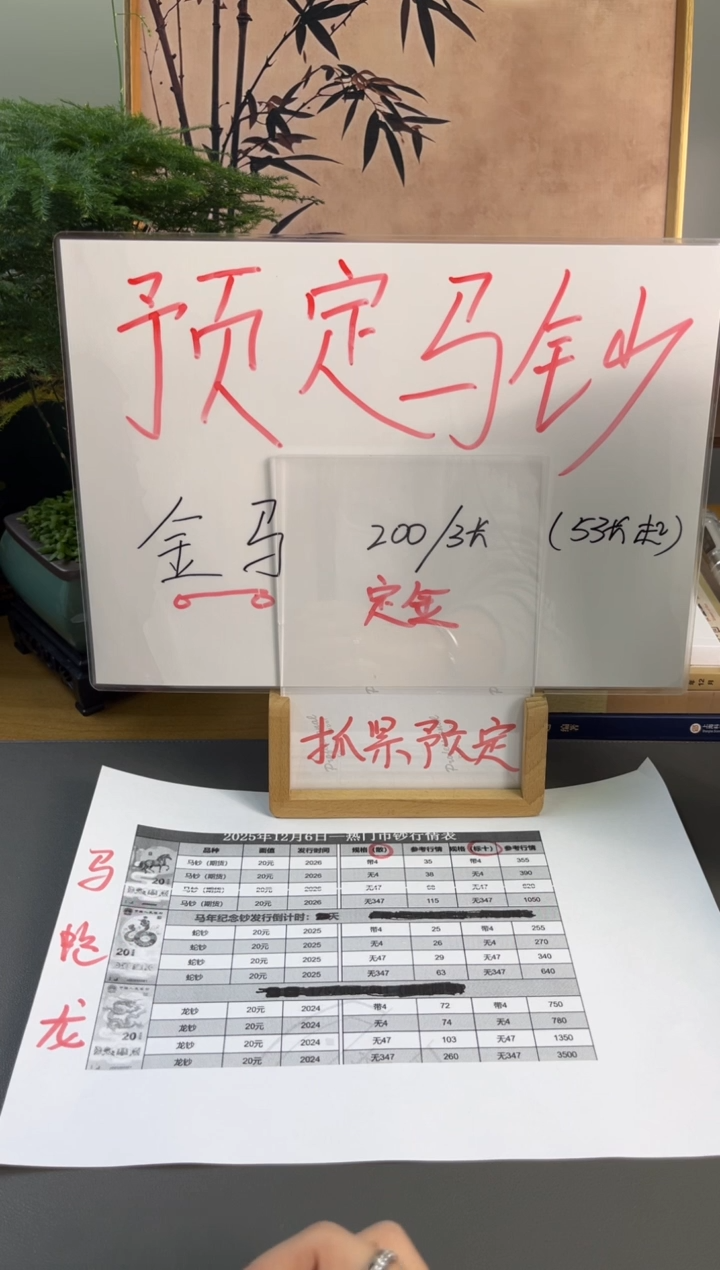 预定马钞
金马 200/3长 (53长起)
定金
抓紧预定
2025年12月6日—热门币钞行情表
品种 面值 发行时间 规格(散) 参考行情 规格(标十) 参考行情
马钞(期货) 20元 2026 带4 35 带4 355
马钞(期货) 20元 2026 无4 38 无4 390
马钞(期货) 20元 2026 无47 无47
马钞(期货) 20元 2026 无347 115 无347 1050
马年纪念钞发行倒计时: 天
蛇钞 20元 2025 带4 25 带4 255
蛇钞 20元 2025 无4 26 无4 270
蛇钞 20元 2025 无47 29 无47 340
蛇钞 20元 2025 无347 63 无347 640
龙钞 20元 2024 带4 72 带4 750
龙钞 20元 2024 无4 74 无4 780
龙钞 20元 2024 无47 103 无47 1350
龙钞 20元 2024 无347 260 无347 3500
马
蛇
龙